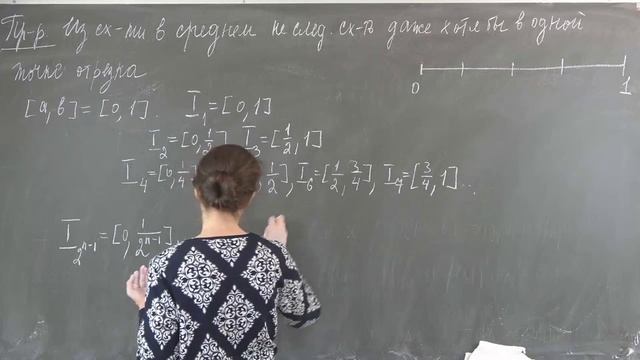 Пр-р. Из сх-ти в среднем не след. сх-ть даже хотя бы в одной
точке отрезка
0 1
[a,b]=[0,1]. I₁=[0,1]
I₂=[0,1/2] I₃=[1/2,1]
I₄=[0,1/4 1/2], I₆=[1/2,3/4], I₇=[3/4,1]...
I_{2^{n-1}}=[0,1/2^{n-1}],